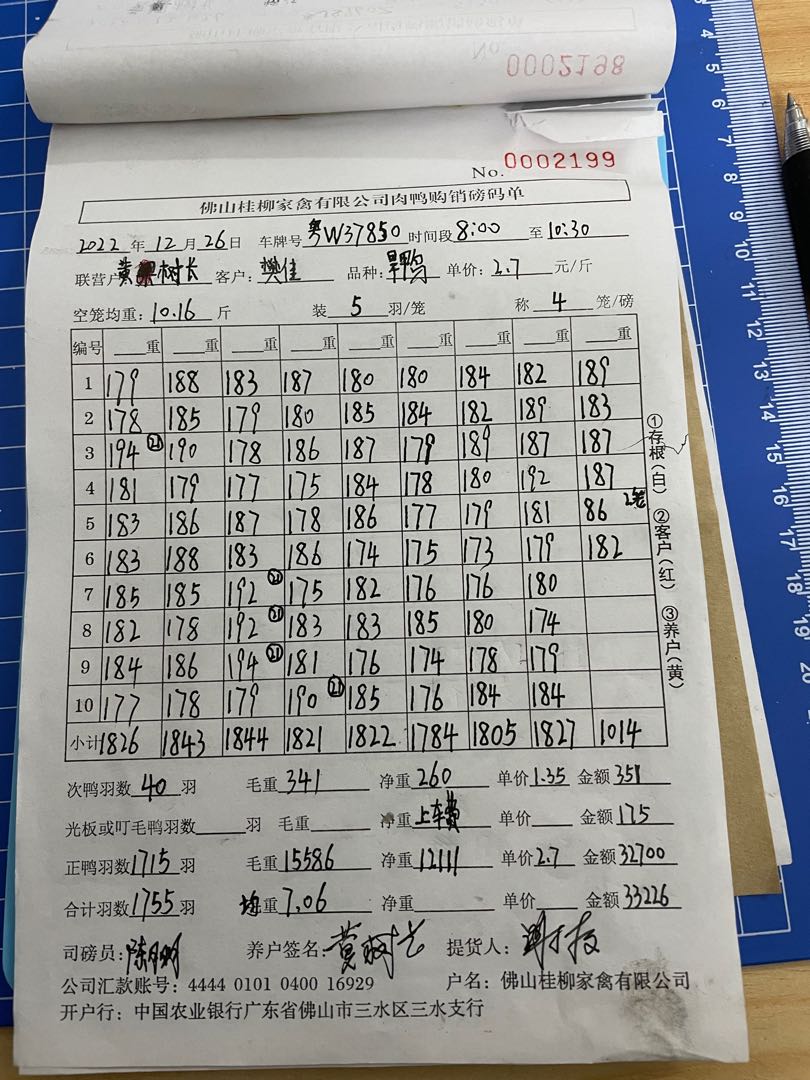 0002198
No. 0002199
佛山桂柳家禽有限公司肉鸭购销磅码单
2022年12月26日 车牌号 粤W37850 时间段 8:00 至 10:30
联营户 黄树长 客户: 樊佳 品种: 单价: 2.7 元/斤
空笼均重: 10.16 斤 装 5 羽/笼 称 4 笼/磅
编号 重 重 重 重 重 重 重 重 重
1 179 188 183 187 180 180 184 182 189
2 178 185 179 180 185 184 182 189 183
3 194 ㉑ 190 178 186 187 179 189 187 187
4 181 179 177 175 184 178 180 192 187
5 183 186 187 178 186 177 179 181 86 2笼
6 183 188 183 186 174 175 173 179 182
7 185 185 192 ㉑ 175 182 176 176 180
8 182 178 192 ㉑ 183 183 185 180 174
9 184 186 194 ㉑ 181 176 174 178 179
10 177 178 179 190 ㉑ 185 176 184 184
小计 1826 1843 1844 1821 1822 1784 1805 1827 1014
①存根(白) ②客户(红) ③养户(黄)
次鸭羽数 40 羽 毛重 341 净重 260 单价 1.35 金额 351
光板或叮毛鸭羽数 羽 毛重 净重 上车费 单价 金额 175
正鸭羽数 1715 羽 毛重 15586 净重 12111 单价 2.7 金额 32700
合计羽数 1755 羽 均重 7.06 净重 单价 金额 33226
司磅员: 养户签名: 黄树长 提货人:
公司汇款账号: 4444 0101 0400 16929 户名: 佛山桂柳家禽有限公司
开户行: 中国农业银行广东省佛山市三水区三水支行